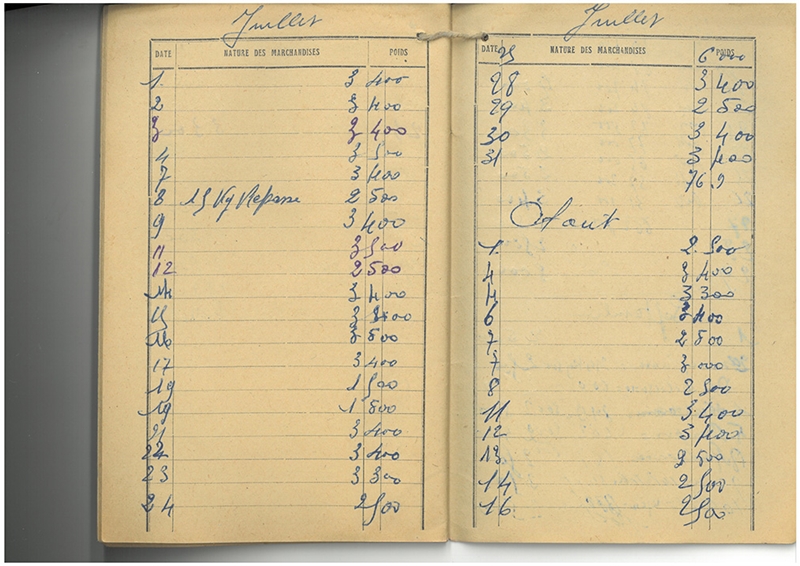 Juillet
DATE NATURE DES MARCHANDISES POIDS
1. 3 400
2 3 400
3 3 400
4 3 500
7 3 400
8 15 Kg Repasse 2 500
9 3 400
11 3 500
12 2 500
14 3 400
15 3
16 3 500
17 3 400
19 1 500
19 1 500
21 3 400
22 3 400
23 3 300
24 2 500
Juillet
DATE NATURE DES MARCHANDISES POIDS
25 6 000
28 3 400
29 2 500
30 3 400
31 3 400
76.9
Aout
1. 2 500
4 3 400
4 3 300
6 3 400
7 2 500
7 3 000
8 2 500
11 3.400
12 3 400
13 2 500
14 2 500
16 2 500